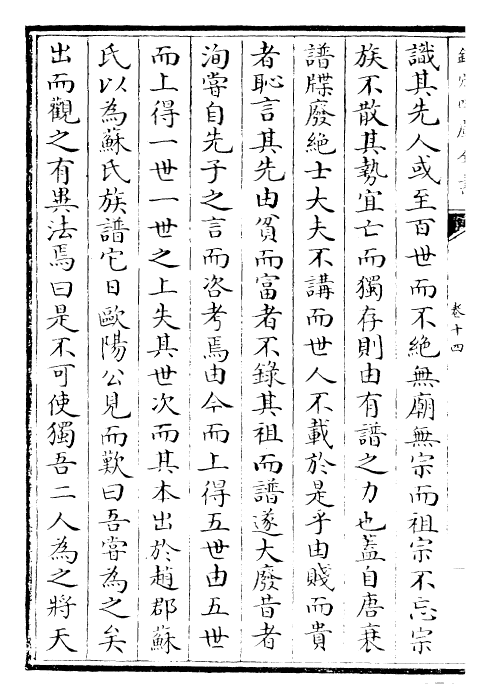 欽定四庫全書
卷十四
識其先人或至百世而不絶無廟無宗而祖宗不忘宗
族不散其勢宜亡而獨存則由有譜之力也蓋自唐衰
譜牒廢絶士大夫不講而世人不載於是乎由賤而貴
者恥言其先由貧而富者不錄其祖而譜遂大廢昔者
洵嘗自先子之言而咨考焉由今而上得五世由五世
而上得一世一世之上失其世次而其本出於趙郡蘇
氏以為蘇氏族譜它日歐陽公見而歎曰吾嘗為之矣
出而觀之有異法焉曰是不可使獨吾二人為之將天